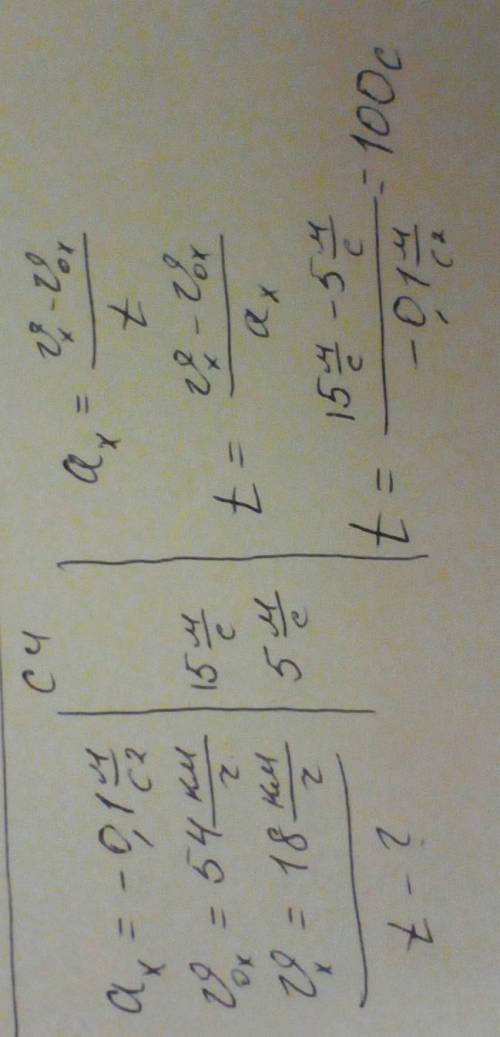 СИ
aₓ = -0,1 м/с²
υ₀ₓ = 54 км/г 15 м/с
υₓ = 18 км/г 5 м/с
t - ?
aₓ = (υₓ - υ₀ₓ)/t
t = (υₓ - υ₀ₓ)/aₓ
t = (15 м/с - 5 м/с)/(-0,1 м/с²) = 100с